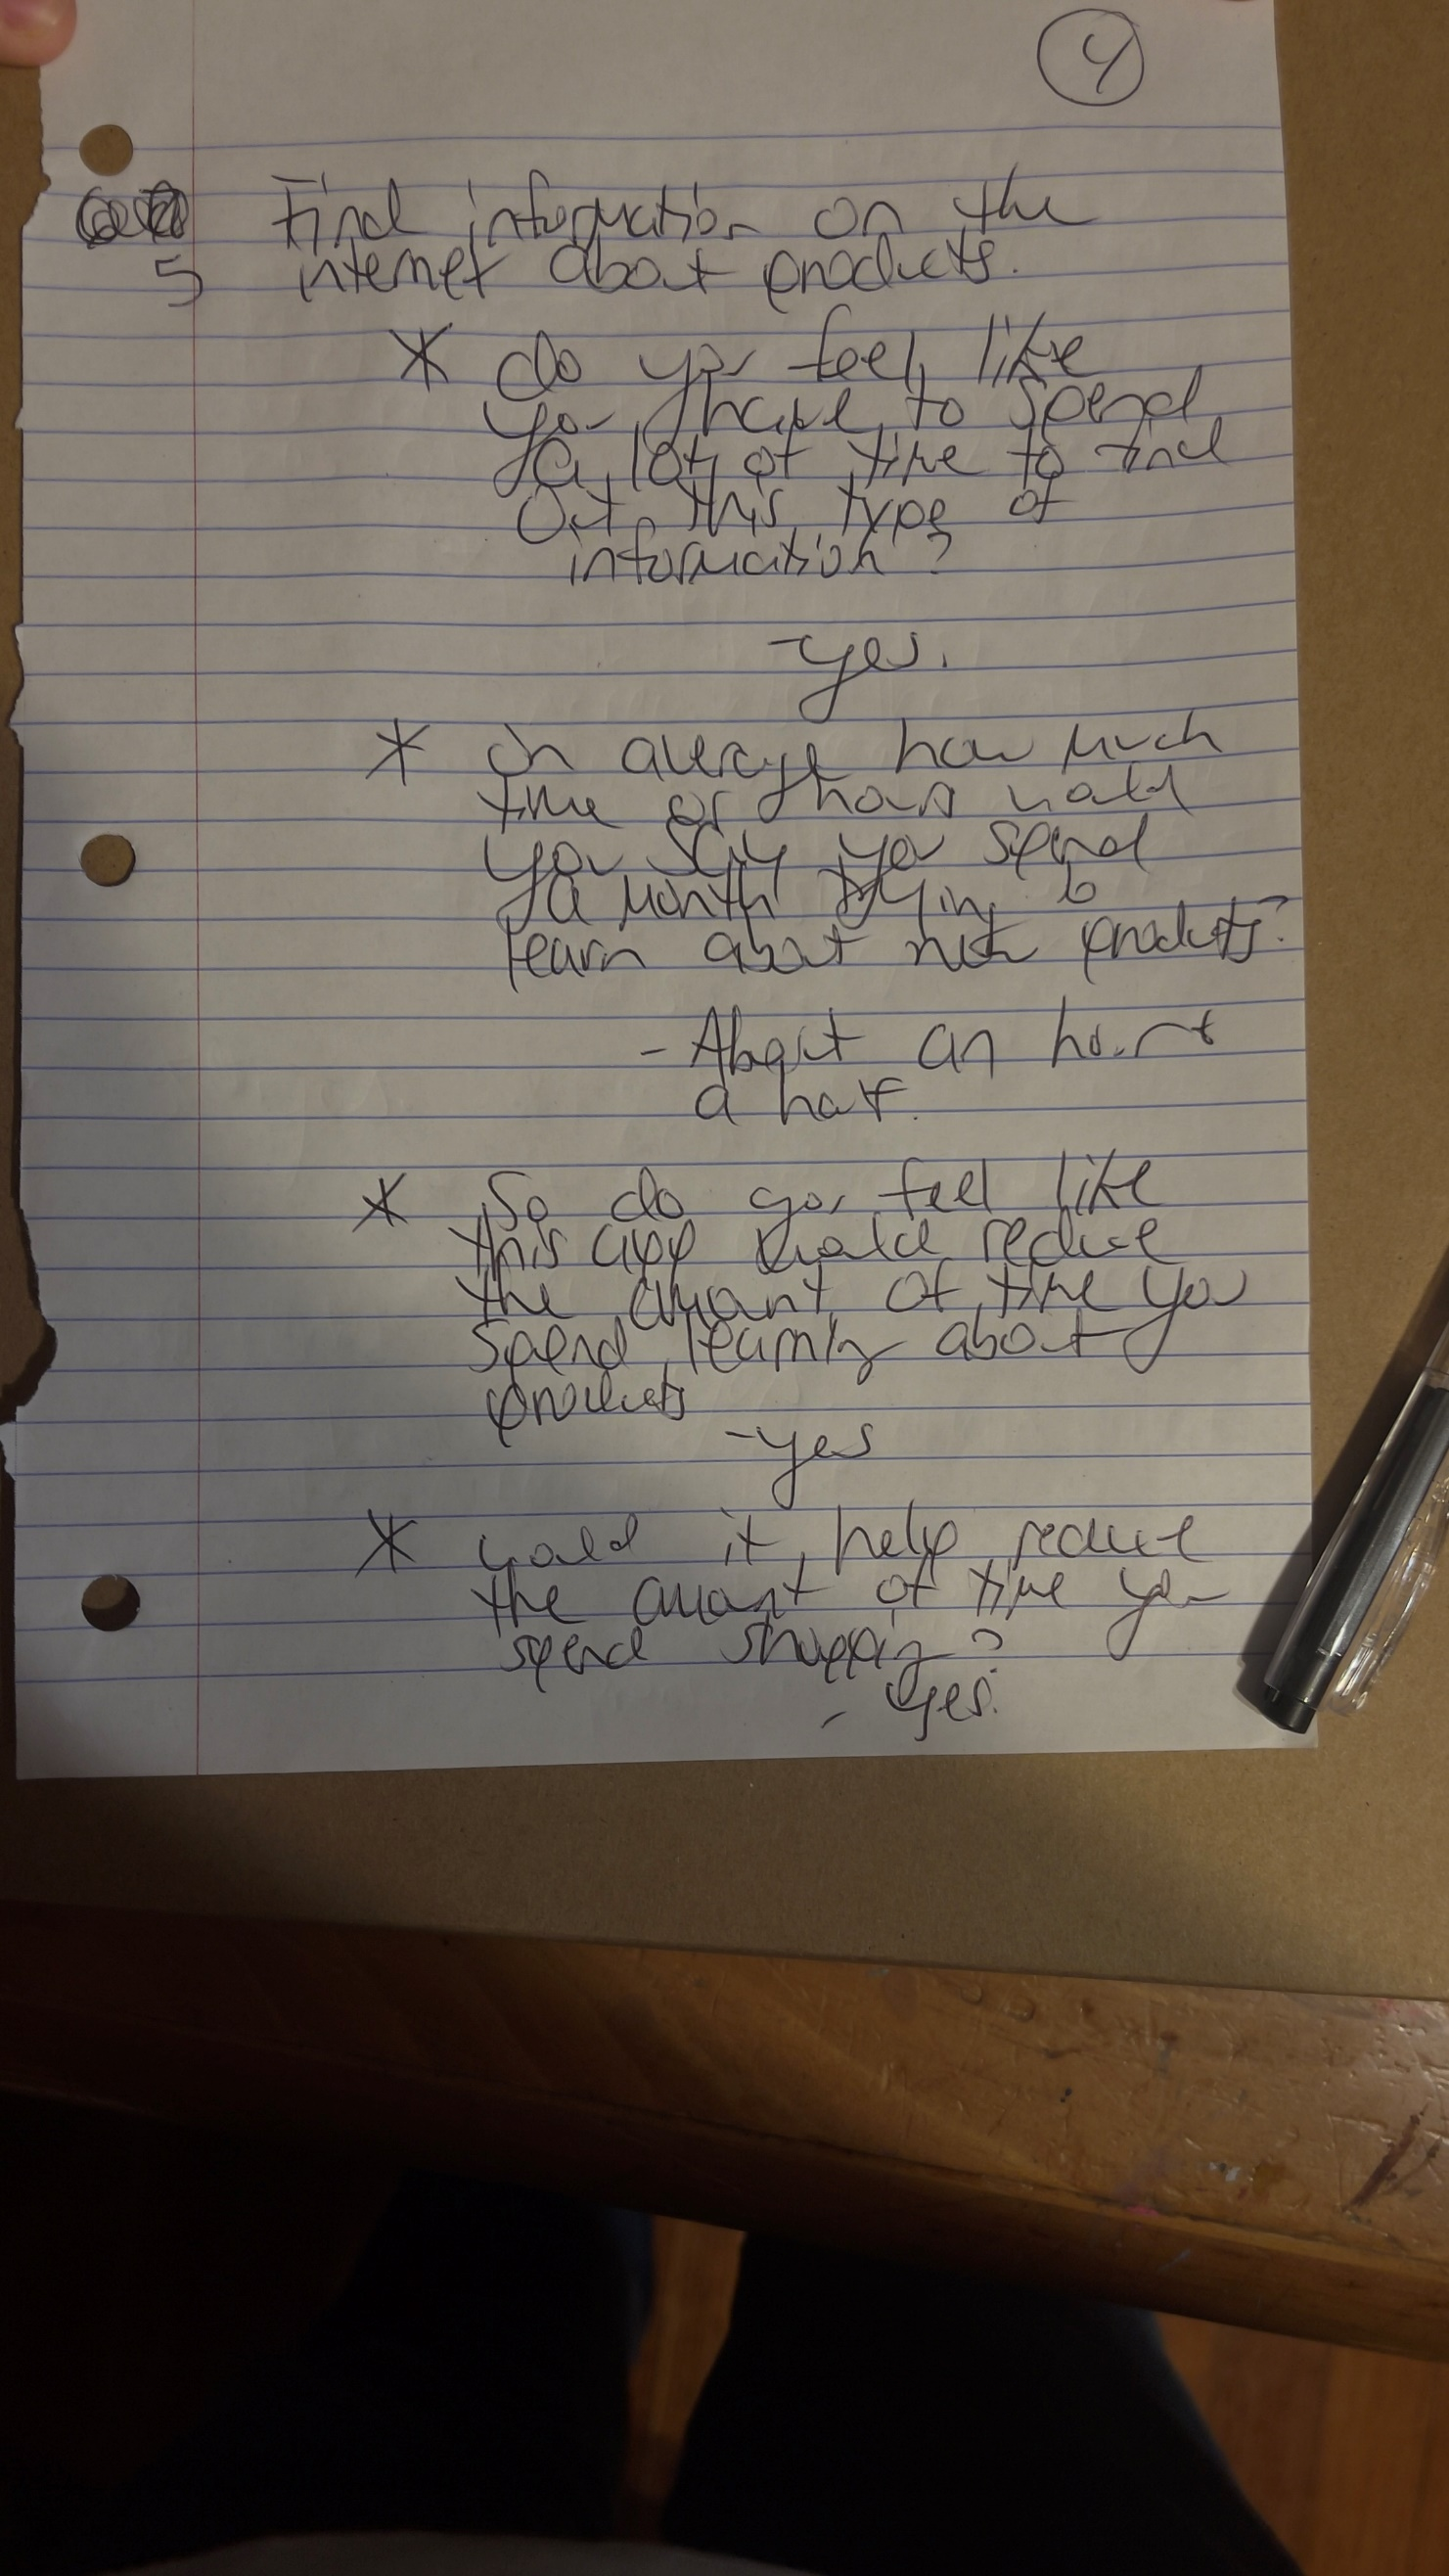 4
Find information on the
5 internet about products.
* do you feel like
you have to spend
a lot of time to find
out this type of
information?
-yes.
* on average how much
time or hours would
you say you spend
a month trying to
learn about new products?
- About an hour &
a half.
* So do you feel like
this app would reduce
the amount of time you
spend learning about
products
-yes
* would it help reduce
the amount of time you
spend shopping?
- yes.